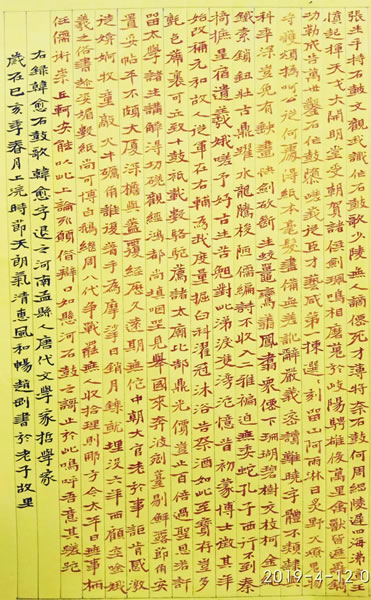 張生手持石鼓文觀我試作石鼓歌少陵無人謫仙死才薄特奈石鼓何周綱陵遲四海沸宣王
憤起揮天戈大開明堂受朝賀諸侯劍珮鳴相磨蒐於岐陽騁雄俊萬里禽獸皆遮羅鐫
功勒成告萬世鑿石作鼓隳嵯峨從臣才藝咸第一揀選撰刻留山阿雨淋日炙野火燎鬼物
守護煩撝呵公從何處得紙本毫髮盡備無差訛辭嚴義密讀難曉字體不類隸與
科年深豈免有缺畫快劍斫斷生蛟鼉鸞翔鳳翥眾仙下珊瑚碧樹交枝柯金繩
鐵索鎖鈕壯古鼎躍水龍騰梭陋儒編詩不收入二雅褊迫無委蛇孔子西行不到秦
掎摭星宿遺羲娥嗟予好古生苦晚對此涕淚雙滂沱憶昔初蒙博士徵其年
始改稱元和故人從軍在右輔為我度量掘臼科濯冠沐浴告祭酒如此至寶存豈多
氈包席裹可立致十鼓祇載數駱駝薦諸太廟比郜鼎光價豈止百倍過聖恩若許
留太學諸生講解得切磋觀經鴻都尚填咽坐見舉國來奔波剜苔剔蘚露節角安
置妥帖平不頗大廈深簷與蓋覆經歷久遠期無佗中朝大官老於事詎肯感激
徒媕婀牧童敲火牛礪角誰復著手為摩挲日銷月鑠就埋沒六年西顧空吟哦
羲之俗書趁姿媚數紙尚可博白鵝繼周八代爭戰罷無人收拾理則那方今太平日無事柄
任儒術崇丘軻安能以此上論列願借辯口如懸河石鼓之歌止於此嗚呼吾意其蹉跎
右錄韓愈石鼓歌韓愈字退之河南孟縣人唐代文學家哲學家
歲在己亥季春月上浣時節天朗氣清惠風和暢趙書於老子故里
2019-4-12 0